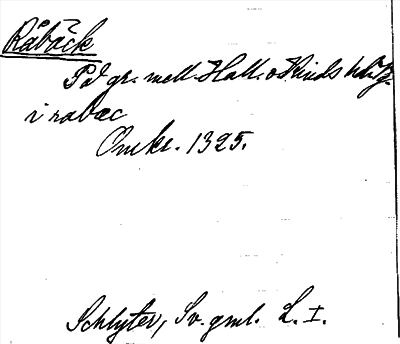 Råbäck
På gr. mell. Hall. o Kinds hd, Vg.
i rabæc
Omkr. 1325.
Schlyter, Sv. gml. L. I.